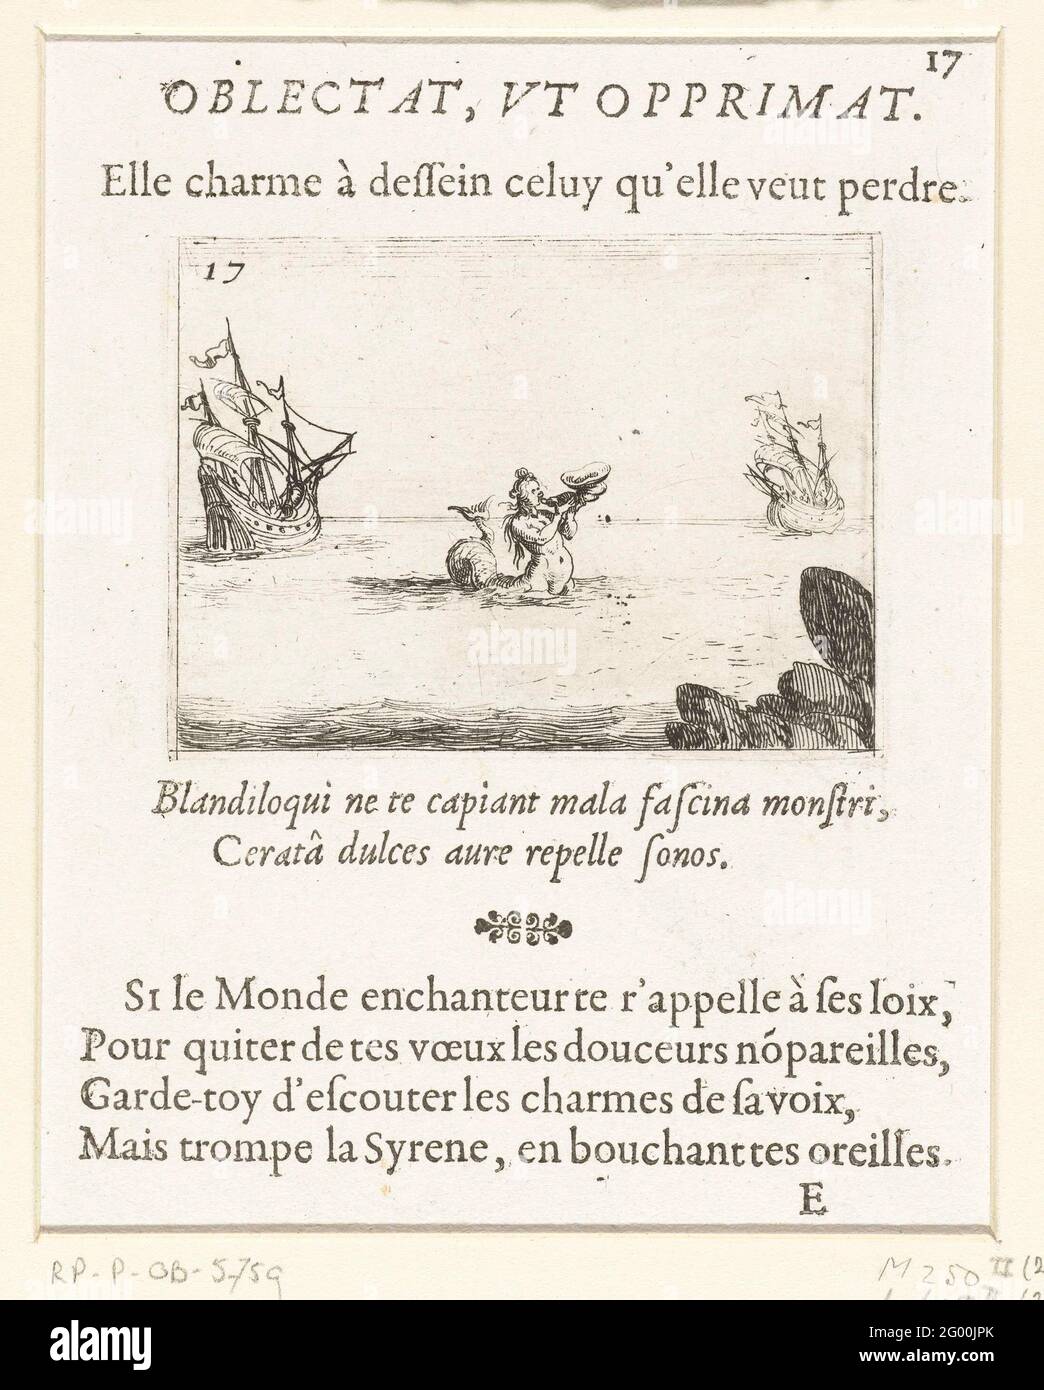 17
OBLECTAT, VT OPPRIMAT.
Elle charme à deſſein celuy qu'elle veut perdre.
17
Blandiloqui ne te capiant mala faſcina monſtri,
Ceratâ dulces aure repelle ſonos.
SI le Monde enchanteur te r'appelle à ſes loix,
Pour quiter de tes vœux les douceurs nõpareilles,
Garde-toy d'eſcouter les charmes de ſa voix,
Mais trompe la Syrene, en bouchant tes oreilles.
E
RP-P-OB-5.759
M 250 II (2
alamy
Image ID: 2G00JPK
www.alamy.com